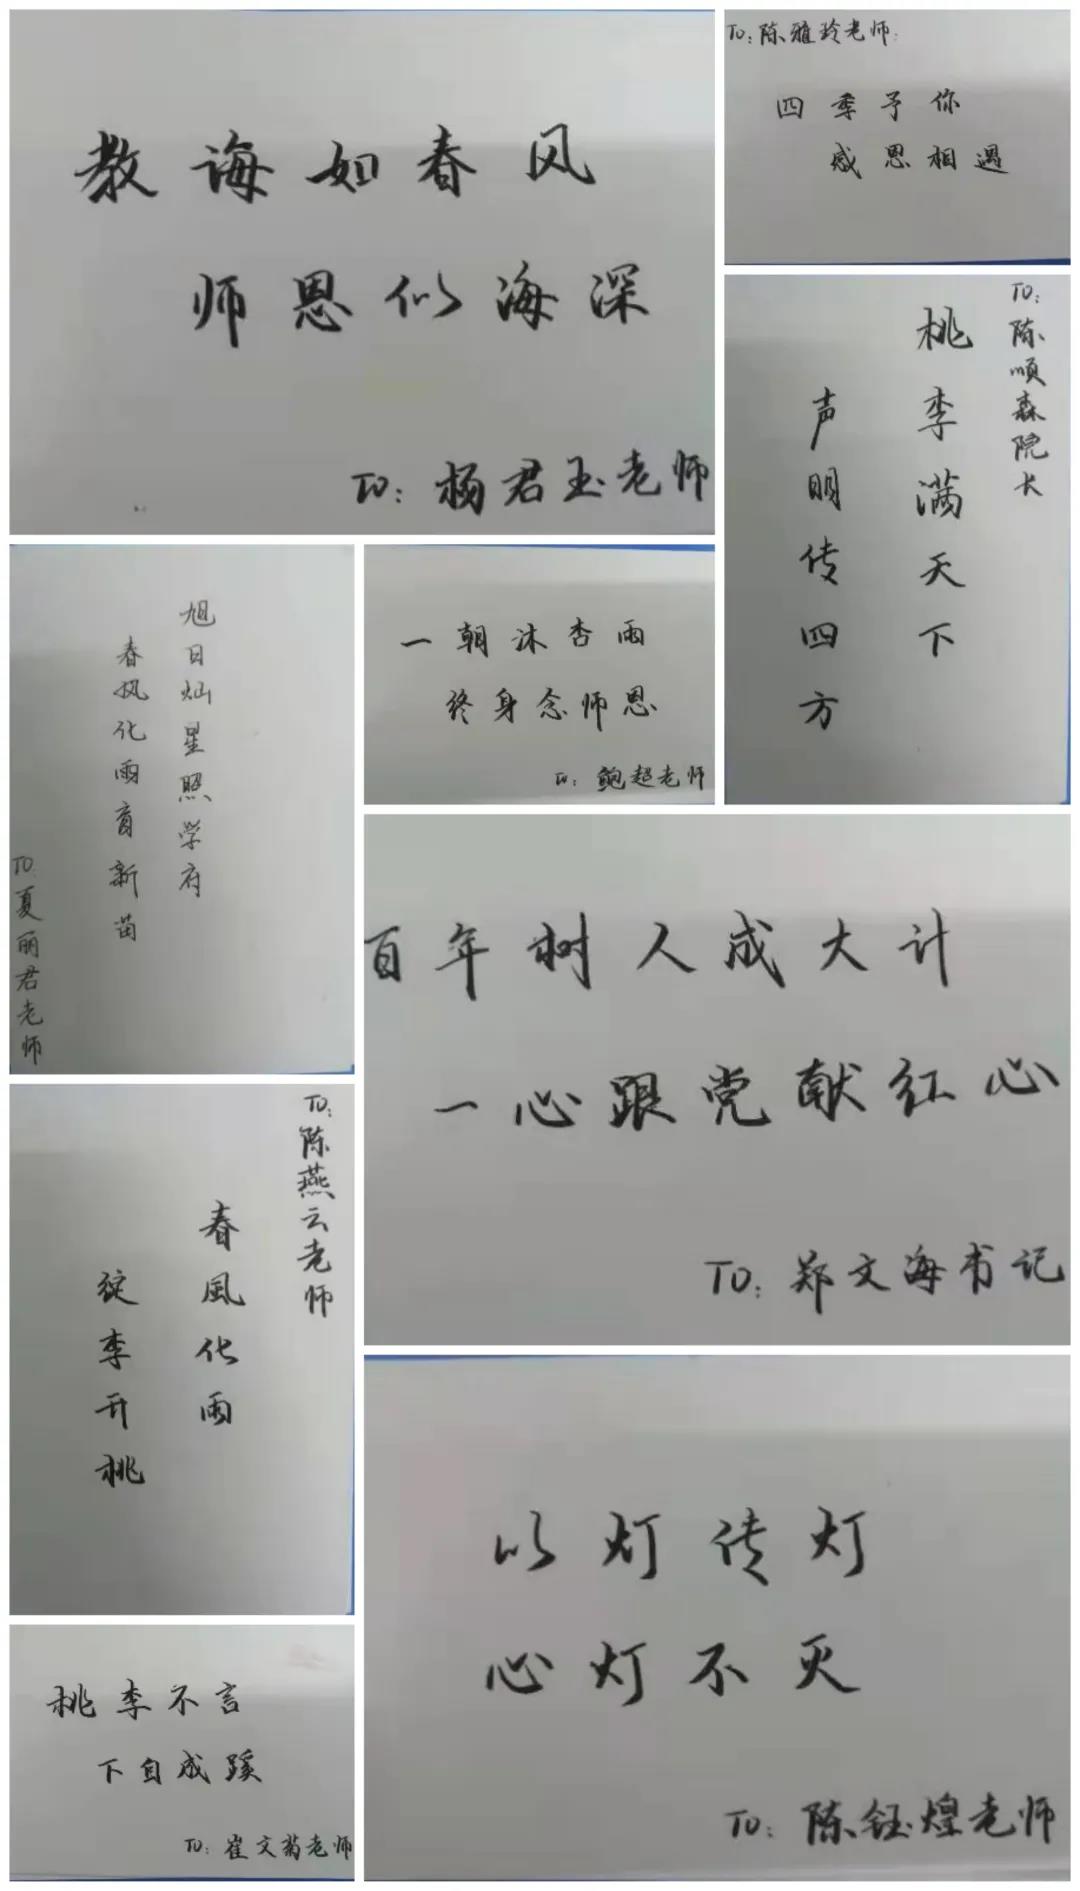 教诲如春风
师恩似海深
TO：杨君玉老师
TO：陈雅玲老师：
四季予你
感恩相遇
TO：陈顺森院长
桃李满天下
声明传四方
旭日灿星照学府
春风化雨育新苗
TO：夏丽君老师
一朝沐杏雨
终身念师恩
TO：鲍超老师
百年树人成大计
一心跟党献红心
TO：郑文海书记
TO：陈燕云老师
春風化雨
绽李开桃
以灯传灯
心灯不灭
TO：陈钰煌老师
桃李不言
下自成蹊
TO：崔文菊老师